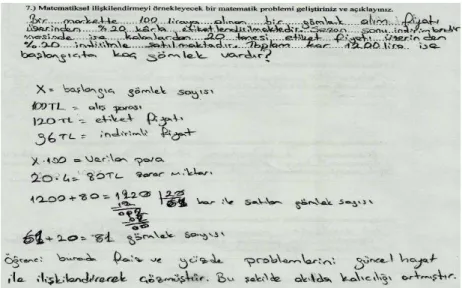 7.) Matematiksel ilişkilendirmeyi örnekleyecek bir matematik problemi geliştiriniz ve açıklayınız.
Bir markette 100 liraya alınan bir gömlek alım fiyatı
üzerinden %20 karla etiketlendirilmektedir. Sezon sonu indirimlendir
mesinde ise kalanlardan 20 tanesi etiket fiyatı üzerinden
%20 indirimle satılmaktadır. Toplam kar 1200 lira ise
başlangıçta kaç gömlek vardır?
X = başlangıç gömlek sayısı
100TL = alış parası
120TL = etiket fiyatı
96TL = indirimli fiyat
X.100 = Verilen para
20.4 = 80TL zarar miktarı
1200+80 = 1220 20
12 61 kar ile satılan gömlek sayısı
61+20 = 81 gömlek sayısı
Öğrenci burada faiz ve yüzde problemlerini güncel hayat
ile ilişkilendirerek çözmüştür. Bu şekilde akılda kalıcılığı artmıştır.